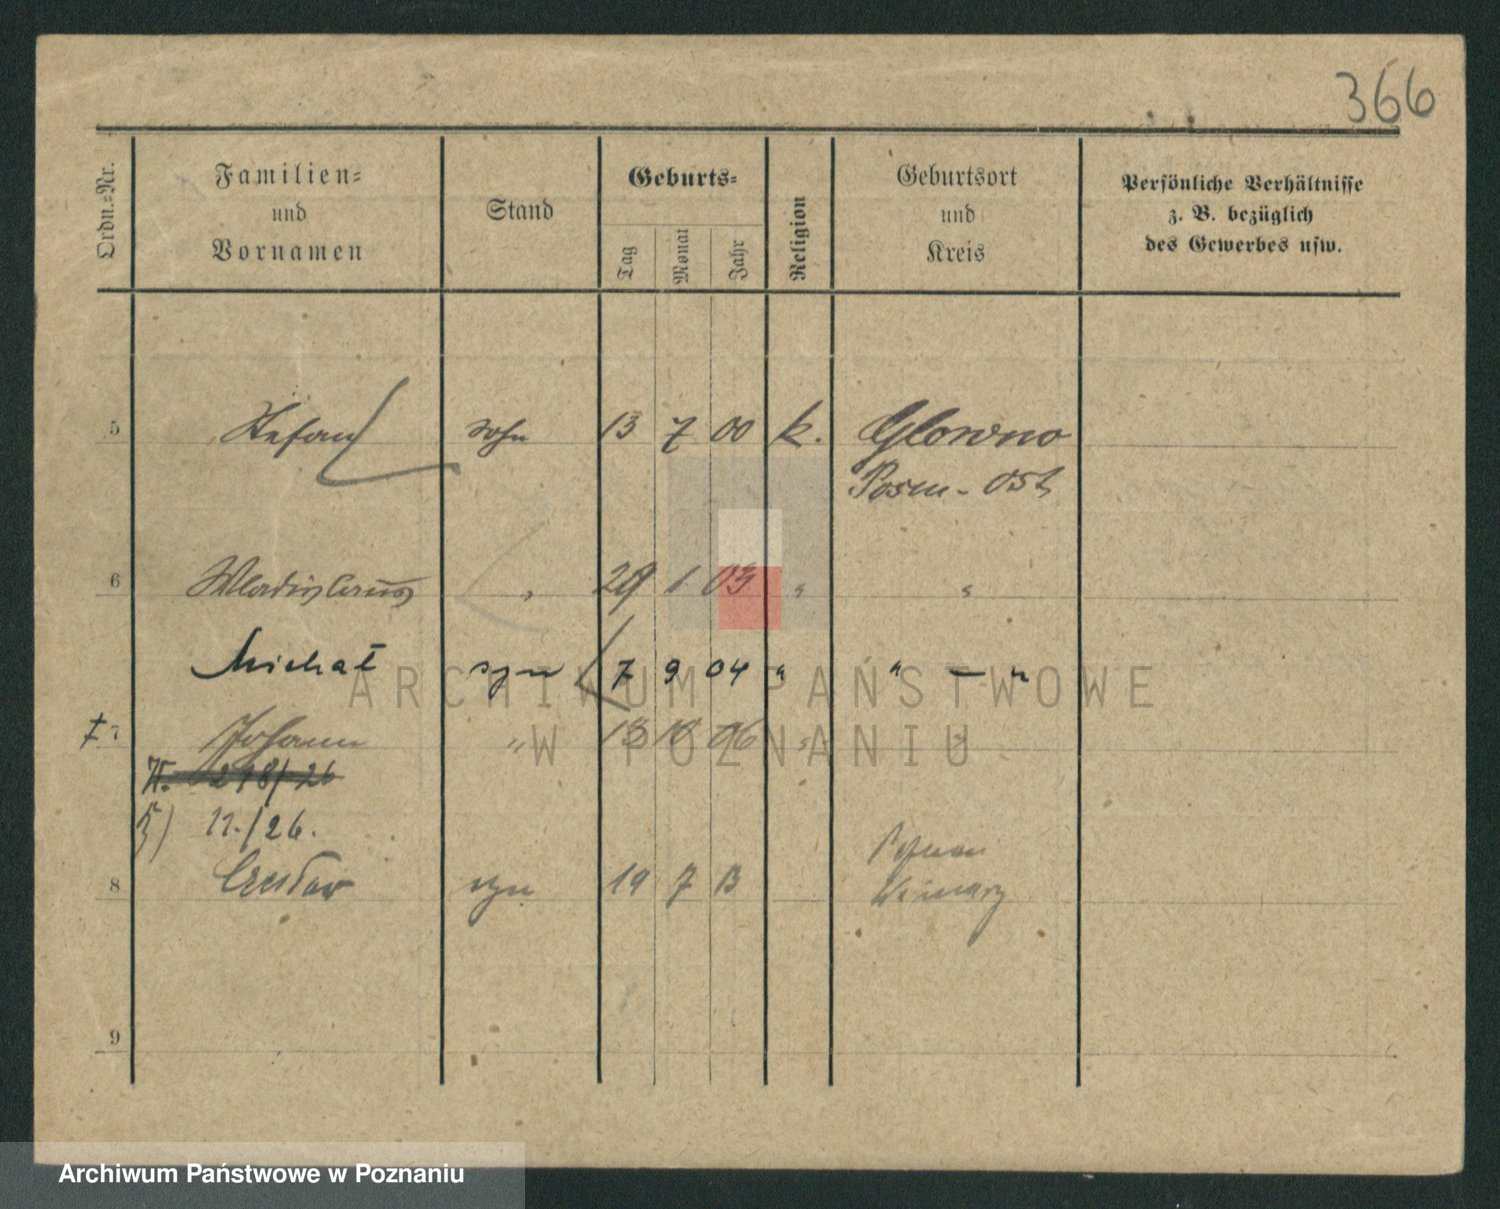 366
Ordn.-Nr. Familien- und Vornamen Stand Geburts- Tag Monat Jahr Religion Geburtsort und Kreis Persönliche Verhältnisse z. B. bezüglich des Gewerbes usw.
5 Stefan Sohn 13 7 00 k. Glowno
Posen - Ost
6 Wladislaus " 29 1 03 " "
Michał syn 7 9 04 " " — "
ARCHIWUM PAŃSTWOWE
† 7 Johann " 06 " "
W POZNANIU
218/26
11./26.
8 Czesław syn 19 7 13
9
Archiwum Państwowe w Poznaniu